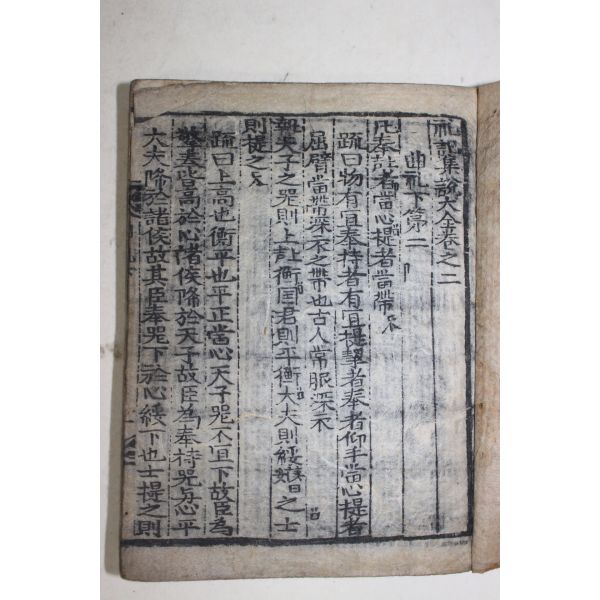 礼記集說大全卷之二
曲礼下第二
凡奉者當心提者當帶
疏曰物有宜奉持者有宜提挈者奉者仰手當心提者
屈臂當帶深衣之帶也古人常服深衣
執天子之器則上衡国君則平衡大夫則綏之士
則提之
疏曰上高也衡平也平正當心天子器不宜下故臣為
擎奉皆高於心諸侯降於天子故臣為奉持器与心平
大夫降於諸侯故其臣奉器下於心綏下也士提之則